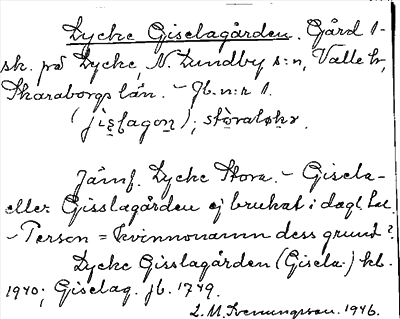 Lycke Giselagården. Gård 1-
sk. på Lycke, N. Lundby s:n, Valle hd,
Skaraborgs län. - Jb. n:r 1.
(jisͅlagoṇ); stòraløkɐ.
Jämf. Lycke Stora. - Gisela-
eller Gisslagården ej brukat i dagl. tal.
- Person = kvinnonamn dess grund?
Lycke Gisslagården (Gisela-) kb.
1940; Giselag. jb. 1779.
L. M. Svenungsson. 1946.